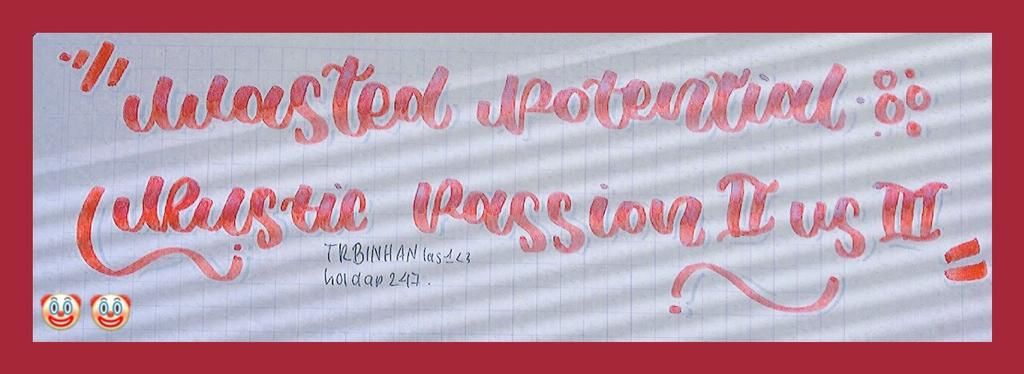 Wasted Potential
Rustic Passion II us III
TRBINHAN las1<3
hoidap247.